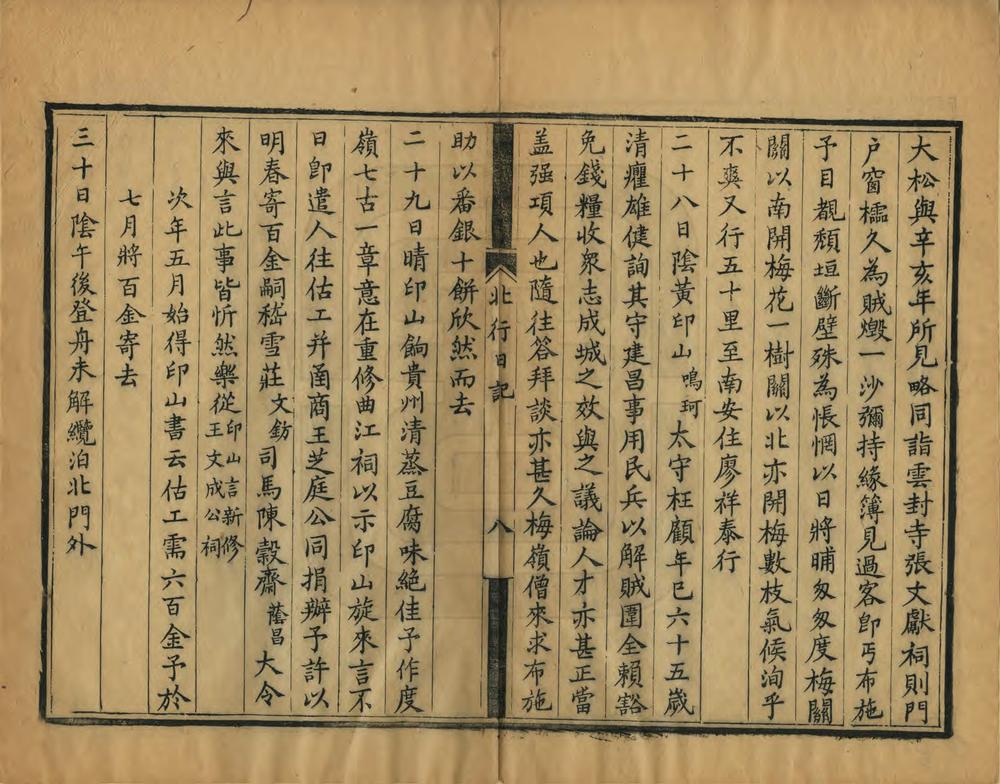 大松與辛亥年所見略同詣雲封寺張文獻祠則門
户窗櫺久為賊燬一沙彌持緣簿見過客卽丐布施
予目覩頹垣斷壁殊為悵惘以日將晡匆匆度梅關
關以南開梅花一樹關以北亦開梅數枝氣候洵乎
不爽又行五十里至南安住廖祥泰行
二十八日陰黃印山鳴珂太守枉顧年已六十五歲
清癯雄健詢其守建昌事用民兵以解賊圍全賴豁
免錢糧收衆志成城之效與之議論人才亦甚正當
盖强項人也隨往答拜談亦甚久梅嶺僧來求布施
助以番銀十餅欣然而去
北行日記
八
二十九日晴印山餉貴州清蒸豆腐味絕佳予作度
嶺七古一章意在重修曲江祠以示印山旋來言不
日卽遣人往估工并函商王芝庭公同捐辦予許以
明春寄百金嗣嵇雪莊文鈁司馬陳穀齋蔭昌大令
來與言此事皆忻然樂從印山言新修王文成公祠
次年五月始得印山書云估工需六百金予於
七月將百金寄去
三十日陰午後登舟未解纜泊北門外